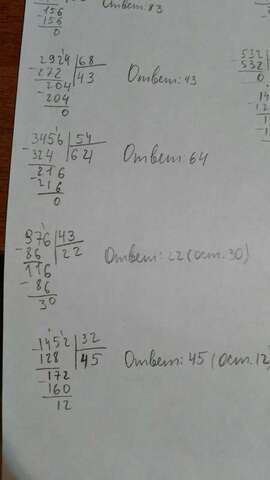 156
-156
0
Ответ: 83
2924 | 68
-272 | 43
204
-204
0
Ответ: 43
532
532
0
-3456 | 54
324 | 64
-216
216
0
Ответ: 64
976 | 43
-86 | 22
116
-86
30
Ответ: 22 (ост. 30)
-1452 | 32
128 | 45
-172
160
12
Ответ: 45 (ост. 12)